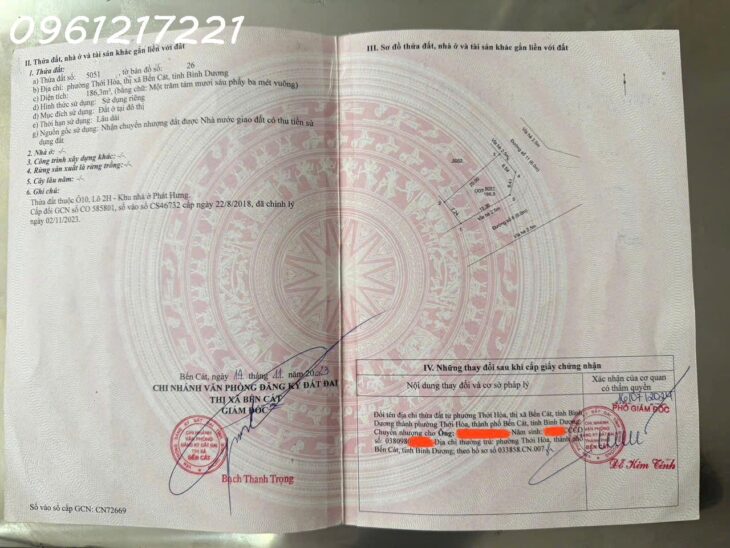 0961217221
II. Thửa đất, nhà ở và tài sản khác gắn liền với đất
1. Thửa đất:
a) Thửa đất số: 5051 , tờ bản đồ số: 26
b) Địa chỉ: phường Thới Hòa, thị xã Bến Cát, tỉnh Bình Dương
c) Diện tích: 186,3m², (bằng chữ: Một trăm tám mươi sáu phẩy ba mét vuông)
d) Hình thức sử dụng: Sử dụng riêng
đ) Mục đích sử dụng: Đất ở tại đô thị
e) Thời hạn sử dụng: Lâu dài
g) Nguồn gốc sử dụng: Nhận chuyển nhượng đất được Nhà nước giao đất có thu tiền sử
dụng đất
2. Nhà ở: -/-
3. Công trình xây dựng khác: -/-
4. Rừng sản xuất là rừng trồng: -/-
5. Cây lâu năm: -/-
6. Ghi chú:
Thửa đất thuộc Ô10, Lô 2H - Khu nhà ở Phát Hưng.
Cấp đổi GCN số CO 585801, số vào sổ CS46752 cấp ngày 22/8/2018, đã chỉnh lý
ngày 02/11/2023.
Bến Cát, ngày 14 tháng 11 năm 2023
CHI NHÁNH VĂN PHÒNG ĐĂNG KÝ ĐẤT ĐAI
THỊ XÃ BẾN CÁT
GIÁM ĐỐC
CHI NHÁNH
VĂN PHÒNG
ĐĂNG KÝ ĐẤT ĐAI
THỊ XÃ
BẾN CÁT
Bạch Thanh Trọng
Số vào sổ cấp GCN: CN72669
III. Sơ đồ thửa đất, nhà ở và tài sản khác gắn liền với đất
Vỉa hè
Đường số
5051
186.3
IV. Những thay đổi sau khi cấp giấy chứng nhận
Nội dung thay đổi và cơ sở pháp lý
Xác nhận của cơ quan
có thẩm quyền
Đổi tên địa chỉ thửa đất từ phường Thới Hòa, thị xã Bến Cát, tỉnh Bình
Dương thành phường Thới Hòa, thành phố Bến Cát, tỉnh Bình Dương.
Chuyển nhượng cho Ông: Năm sinh:
số: 038098 Địa chỉ thường trú: phường Thới Hòa, thành phố
Bến Cát, tỉnh Bình Dương; theo hồ sơ số 033858.CN.007
PHÓ GIÁM ĐỐC
Đỗ Kim Tính